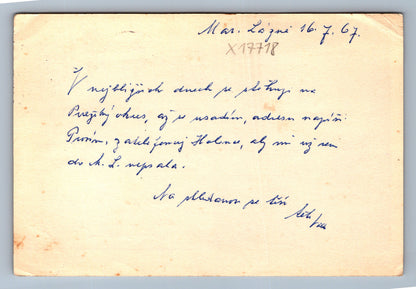 Mar. Lázně 16. 7. 67.
X17718
V nejbližších dnech se stěhuji na
okres, až se usadím, adresu napíši.
Prosím, zatelefonuj Halence, aby mi už sem
do M. L. nepsala.
Na shledanou se těší